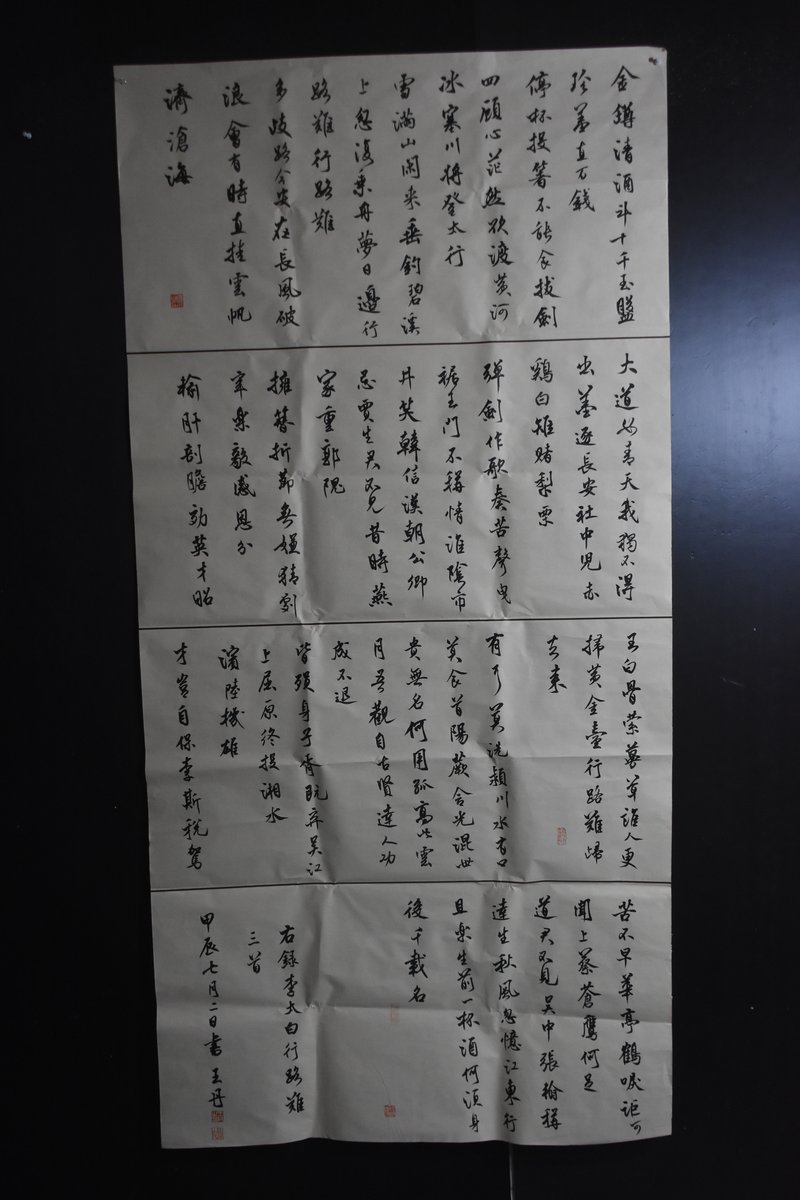 金鐏清酒斗十千玉盤
珍羞直万錢
停杯投箸不能食拔劍
四顧心茫然欲渡黃河
冰塞川將登太行
雪滿山閑来垂釣碧溪
上忽復乘舟夢日邊行
路難行路難
多歧路今安在長風破
浪會有時直挂雲帆
濟滄海
大道如青天我獨不得
出羞逐長安社中児赤
鷄白雉賭梨栗
弹劍作歌奏苦聲曳
裾王門不稱情淮陰市
井笑韓信漢朝公卿
忌賈生君不見昔時燕
家重郭隗
擁篲折節無嫌猜劇
辛樂毅感恩分
輸肝剖膽効英才昭
王白骨縈蔓草誰人更
掃黃金臺行路難歸
去来
有耳莫洗潁川水有口
莫食首陽蕨含光混世
貴無名何用孤高比雲
月吾觀自古賢達人功
成不退
皆殞身子胥既弃吴江
上屈原終投湘水
濱陸機雄
才豈自保李斯税駕
苦不早華亭鶴唳詎可
聞上蔡蒼鷹何足
道君不見吴中張翰稱
達生秋風忽憶江東行
且樂生前一杯酒何須身
後千載名
右錄李太白行路難
三首
甲辰七月二日書王丹